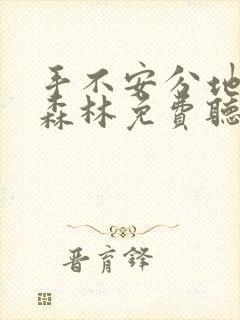 手不安分地
森林免费聽
晋育鋒